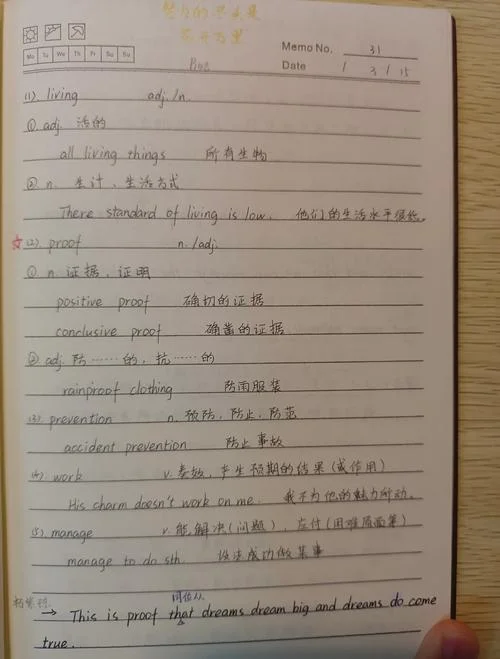 努力的尽头是
花开万里
Memo No. 31
Mo Tu We Th Fr Sa Su
Date 1 / 3 / 15
(1). living adj./n.
① adj. 活的
all living things 所有生物
② n. 生计、生活方式
There standard of living is low. 他们的生活水平很低。
☆(2). proof n./adj.
① n. 证据，证明
positive proof 确切的证据
conclusive proof 确凿的证据
② adj. 防……的，抗……的
rainproof clothing 防雨服装
(3). prevention n. 预防，防止，防范
accident prevention 防止事故
(4). work v. 奏效，产生预期的结果(或作用)
His charm doesn't work on me. 我不为他的魅力所动。
(5). manage v. 能解决(问题)，应付(困难局面等)
manage to do sth. 设法成功做某事
同位从
→ This is proof that dreams dream big and dreams do come
true.